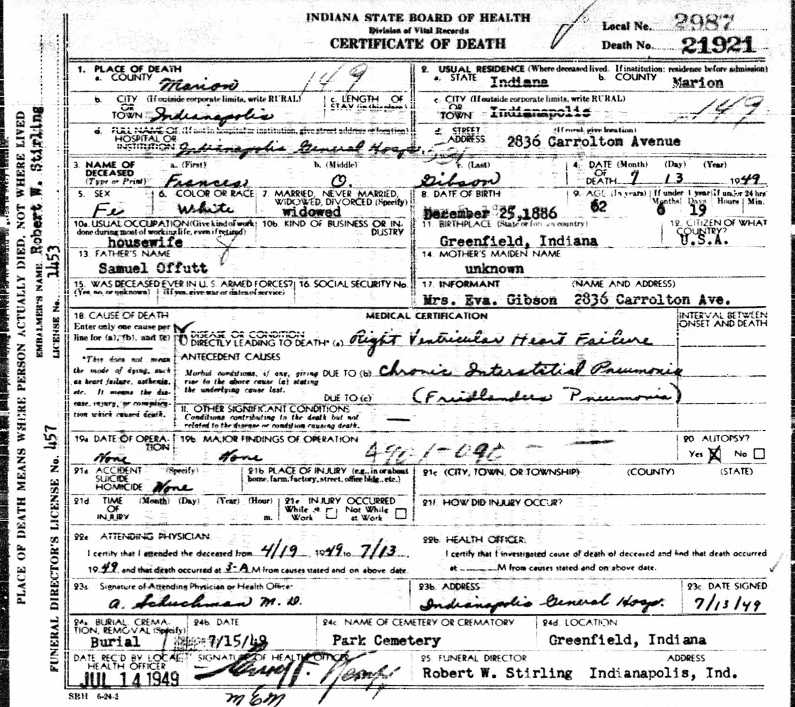 INDIANA STATE BOARD OF HEALTH
Division of Vital Records
CERTIFICATE OF DEATH
Local No. 2987
Death No. 21921
1. PLACE OF DEATH
a. COUNTY Marion
149
2. USUAL RESIDENCE (Where deceased lived. If institution: residence before admission)
a. STATE Indiana b. COUNTY Marion
b. CITY (If outside corporate limits, write RURAL)
OR
TOWN Indianapolis
c. LENGTH OF
STAY (in this place)
c. CITY (If outside corporate limits, write RURAL)
OR
TOWN Indianapolis
149
d. FULL NAME OF (If not in hospital or institution, give street address or location)
HOSPITAL OR
INSTITUTION Indianapolis General Hosp.
d. STREET (If rural, give location)
ADDRESS 2836 Carrolton Avenue
3. NAME OF DECEASED (Type or Print)
a. (First) b. (Middle) c. (Last)
Frances O. Gibson
4. DATE OF DEATH (Month) (Day) (Year)
7 13 1949
5. SEX
Fe
6. COLOR OR RACE
White
7. MARRIED, NEVER MARRIED, WIDOWED, DIVORCED (Specify)
widowed
8. DATE OF BIRTH
December 25, 1886
9. AGE (In years) If under 1 year If under 24 hrs
Months Days Hours Min.
62 6 19
10a. USUAL OCCUPATION (Give kind of work done during most of working life, even if retired)
housewife
10b. KIND OF BUSINESS OR INDUSTRY
11. BIRTHPLACE (State or foreign country)
Greenfield, Indiana
12. CITIZEN OF WHAT COUNTRY?
U.S.A.
13 FATHER'S NAME
Samuel Offutt
14 MOTHER'S MAIDEN NAME
unknown
15. WAS DECEASED EVER IN U. S. ARMED FORCES?
(Yes, no, or unknown) (If yes, give war or dates of service)
16 SOCIAL SECURITY No.
17. INFORMANT (NAME AND ADDRESS)
Mrs. Eva. Gibson 2836 Carrolton Ave.
18. CAUSE OF DEATH
Enter only one cause per
line for (a), (b), and (c)
*This does not mean
the mode of dying, such
as heart failure, asthenia,
etc. It means the disease, injury, or complication which caused death.
MEDICAL CERTIFICATION
INTERVAL BETWEEN
ONSET AND DEATH
I DISEASE OR CONDITION
DIRECTLY LEADING TO DEATH* (a) Right Ventricular Heart Failure
ANTECEDENT CAUSES
Morbid conditions, if any, giving
rise to the above cause (a) stating
the underlying cause last.
DUE TO (b) Chronic Interstitial Pneumonia
DUE TO (c) (Friedlanders Pneumonia)
II. OTHER SIGNIFICANT CONDITIONS
Conditions contributing to the death but not
related to the disease or condition causing death.
19a DATE OF OPERATION
None
19b MAJOR FINDINGS OF OPERATION
None
20 AUTOPSY?
Yes X No
21a ACCIDENT (Specify)
SUICIDE
HOMICIDE None
21b PLACE OF INJURY (e.g., in or about
home, farm, factory, street, office bldg., etc.)
21c (CITY, TOWN, OR TOWNSHIP) (COUNTY) (STATE)
21d TIME OF INJURY (Month) (Day) (Year) (Hour) m.
21e INJURY OCCURRED
While at Work Not While at Work
21f HOW DID INJURY OCCUR?
22a ATTENDING PHYSICIAN
I certify that I attended the deceased from 4/19 1949 to 7/13,
1949 and that death occurred at 3-A M from causes stated and on above date.
22b HEALTH OFFICER
I certify that I investigated cause of death of deceased and find that death occurred
at M from causes stated and on above date.
23a Signature of Attending Physician or Health Officer
A. Schuchman M.D.
23b ADDRESS
Indianapolis General Hosp.
23c DATE SIGNED
7/13/49
24a BURIAL, CREMATION, REMOVAL (Specify)
Burial
24b DATE
7/15/49
24c NAME OF CEMETERY OR CREMATORY
Park Cemetery
24d LOCATION
Greenfield, Indiana
DATE REC'D BY LOCAL HEALTH OFFICER
JUL 14 1949
SIGNATURE OF HEALTH OFFICER
25 FUNERAL DIRECTOR ADDRESS
Robert W. Stirling Indianapolis, Ind.
SBH 6-24-2
PLACE OF DEATH MEANS WHERE PERSON ACTUALLY DIED, NOT WHERE LIVED
EMBALMER'S NAME Robert W. Stirling
LICENSE No. 1453
FUNERAL DIRECTOR'S LICENSE No. 457